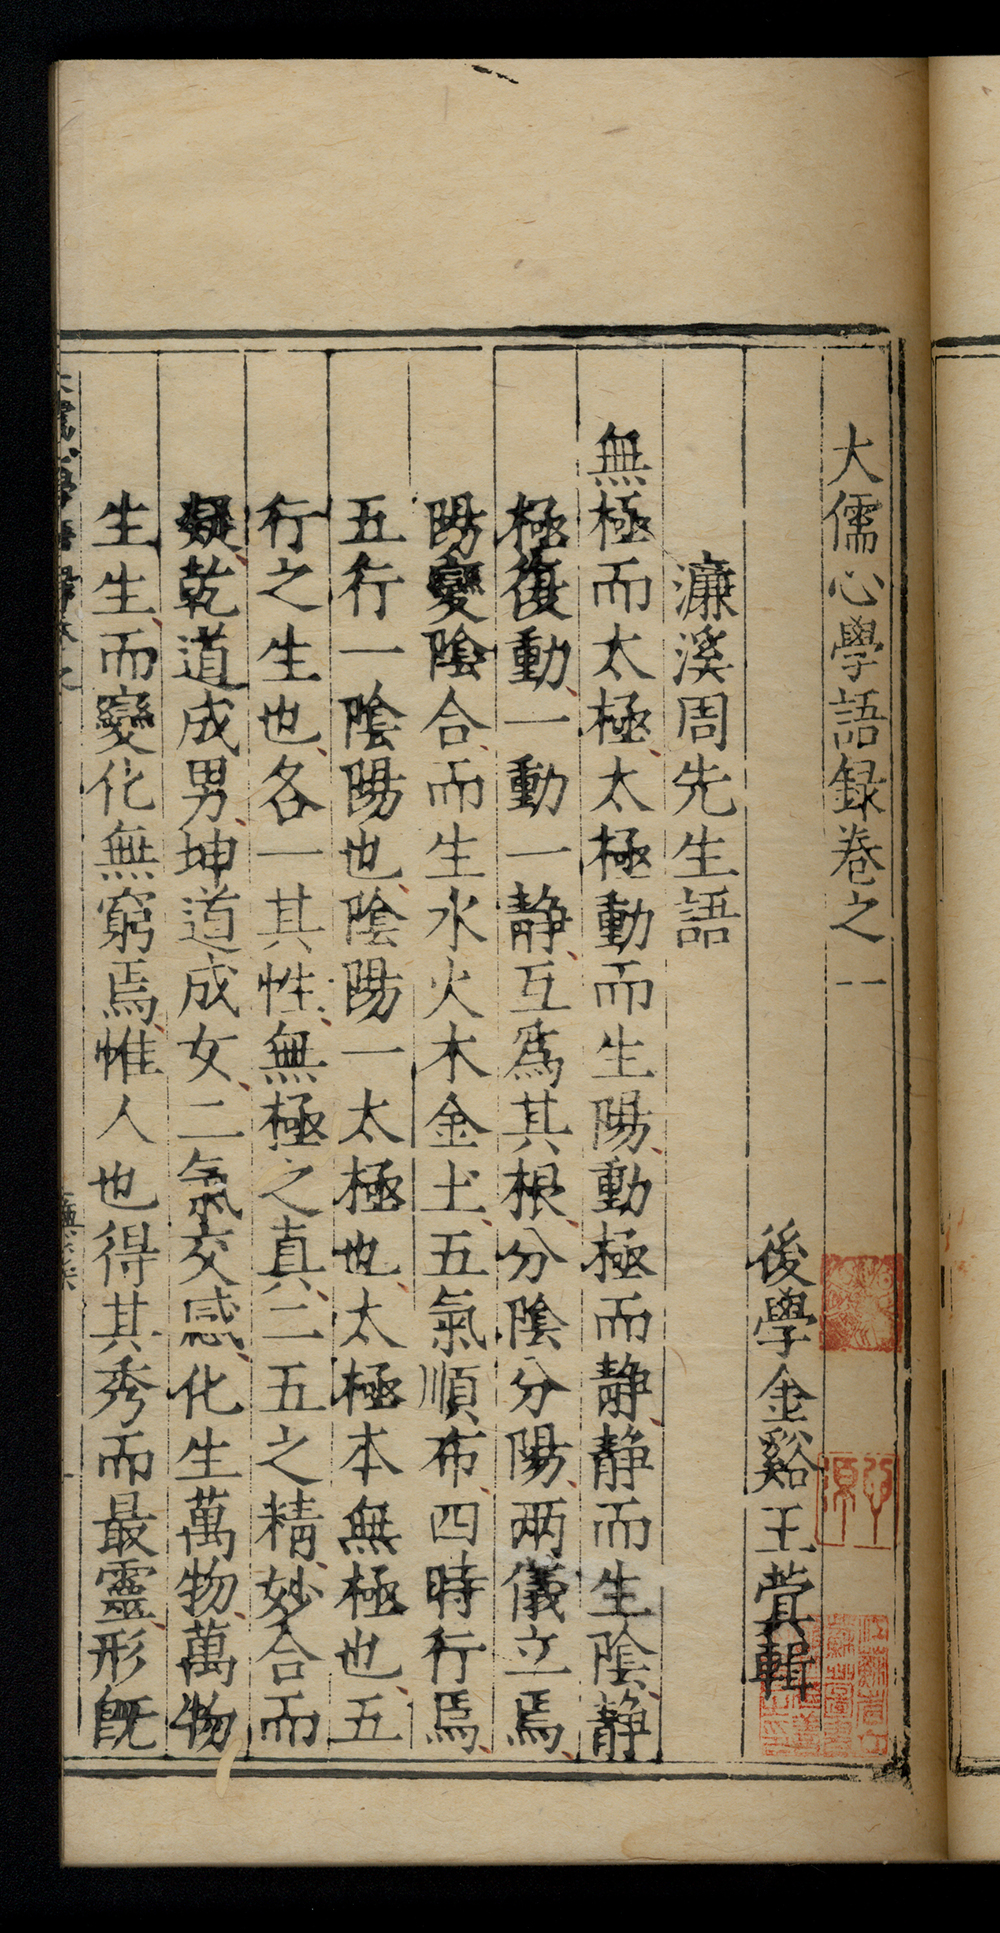 大儒心學語録卷之一
後學金谿王蓂輯
濂溪周先生語
無極而太極太極動而生陽動極而静静而生陰静
極復動一動一静互爲其根分陰分陽兩儀立焉
陽變陰合而生水火木金土五氣順布四時行焉
五行一陰陽也陰陽一太極也太極本無極也五
行之生也各一其性無極之真二五之精妙合而
凝乾道成男坤道成女二氣交感化生萬物萬物
生生而變化無窮焉惟人也得其秀而最靈形既